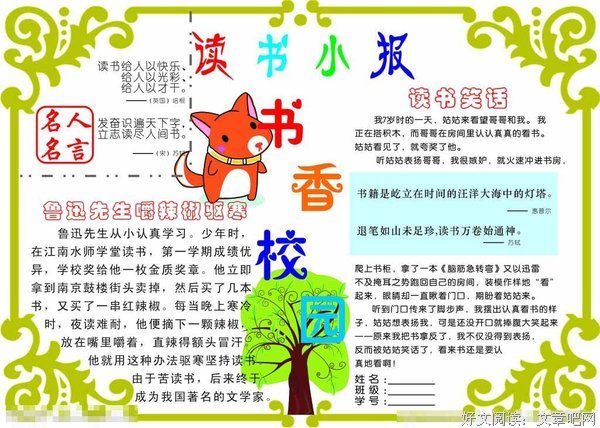 读书小报
书香校园
读书给人以快乐、
给人以光彩、
给人以才干。
——（英国）培根
发奋识遍天下字，
立志读尽人间书。
——（宋）苏轼
名人
名言
鲁迅先生嚼辣椒驱寒
鲁迅先生从小认真学习。少年时，
在江南水师学堂读书，第一学期成绩优
异，学校奖给他一枚金质奖章。他立即
拿到南京鼓楼街头卖掉，然后买了几本
书，又买了一串红辣椒。每当晚上寒冷
时，夜读难耐，他便摘下一颗辣椒，
放在嘴里嚼着，直辣得额头冒汗。
他就用这种办法驱寒坚持读书
由于苦读书，后来终于
成为我国著名的文学家。
读书笑话
我7岁时的一天，姑姑来看望哥哥和我。我
正在搭积木，而哥哥在房间里认认真真的看书。
姑姑看见了，就夸奖了他。
听姑姑表扬哥哥，我很嫉妒，就火速冲进书房，
书籍是屹立在时间的汪洋大海中的灯塔。
——惠普尔
退笔如山未足珍,读书万卷始通神。
——苏轼
爬上书柜，拿了一本《脑筋急转弯》又以迅雷
不及掩耳之势跑回自己的房间，装模作样地“看”
起来，眼睛却一直瞅着门口，期盼着姑姑来。
听到门口传来了脚步声，我摆出认真看书的样
子，姑姑想表扬我，可是还没开口就捧腹大笑起来
——原来我把书拿反了，我不仅没得到表扬，
反而被姑姑笑话了，看来书还是要认
真地看啊！
姓名：
班级：
学号：
好文阅读：文章吧网